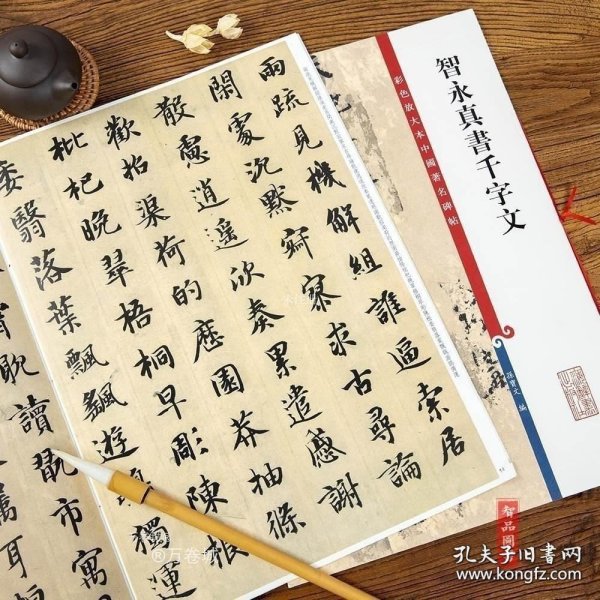 兩疏見機解組誰逼索居
閑處沉默寂寥求古尋論
散慮逍遙欣奏累遣慼謝
歡招渠荷的歷園莽抽條
枇杷晚翠梧桐早彫陳根
委翳落葉飄颻遊鵾獨運
霄耽讀翫市寓
屬耳垣
智永真書千字文
彩色放大本中國著名碑帖
孫寶文 編
智品圖
@万卷城
孔夫子旧書网
www.kongfz.com